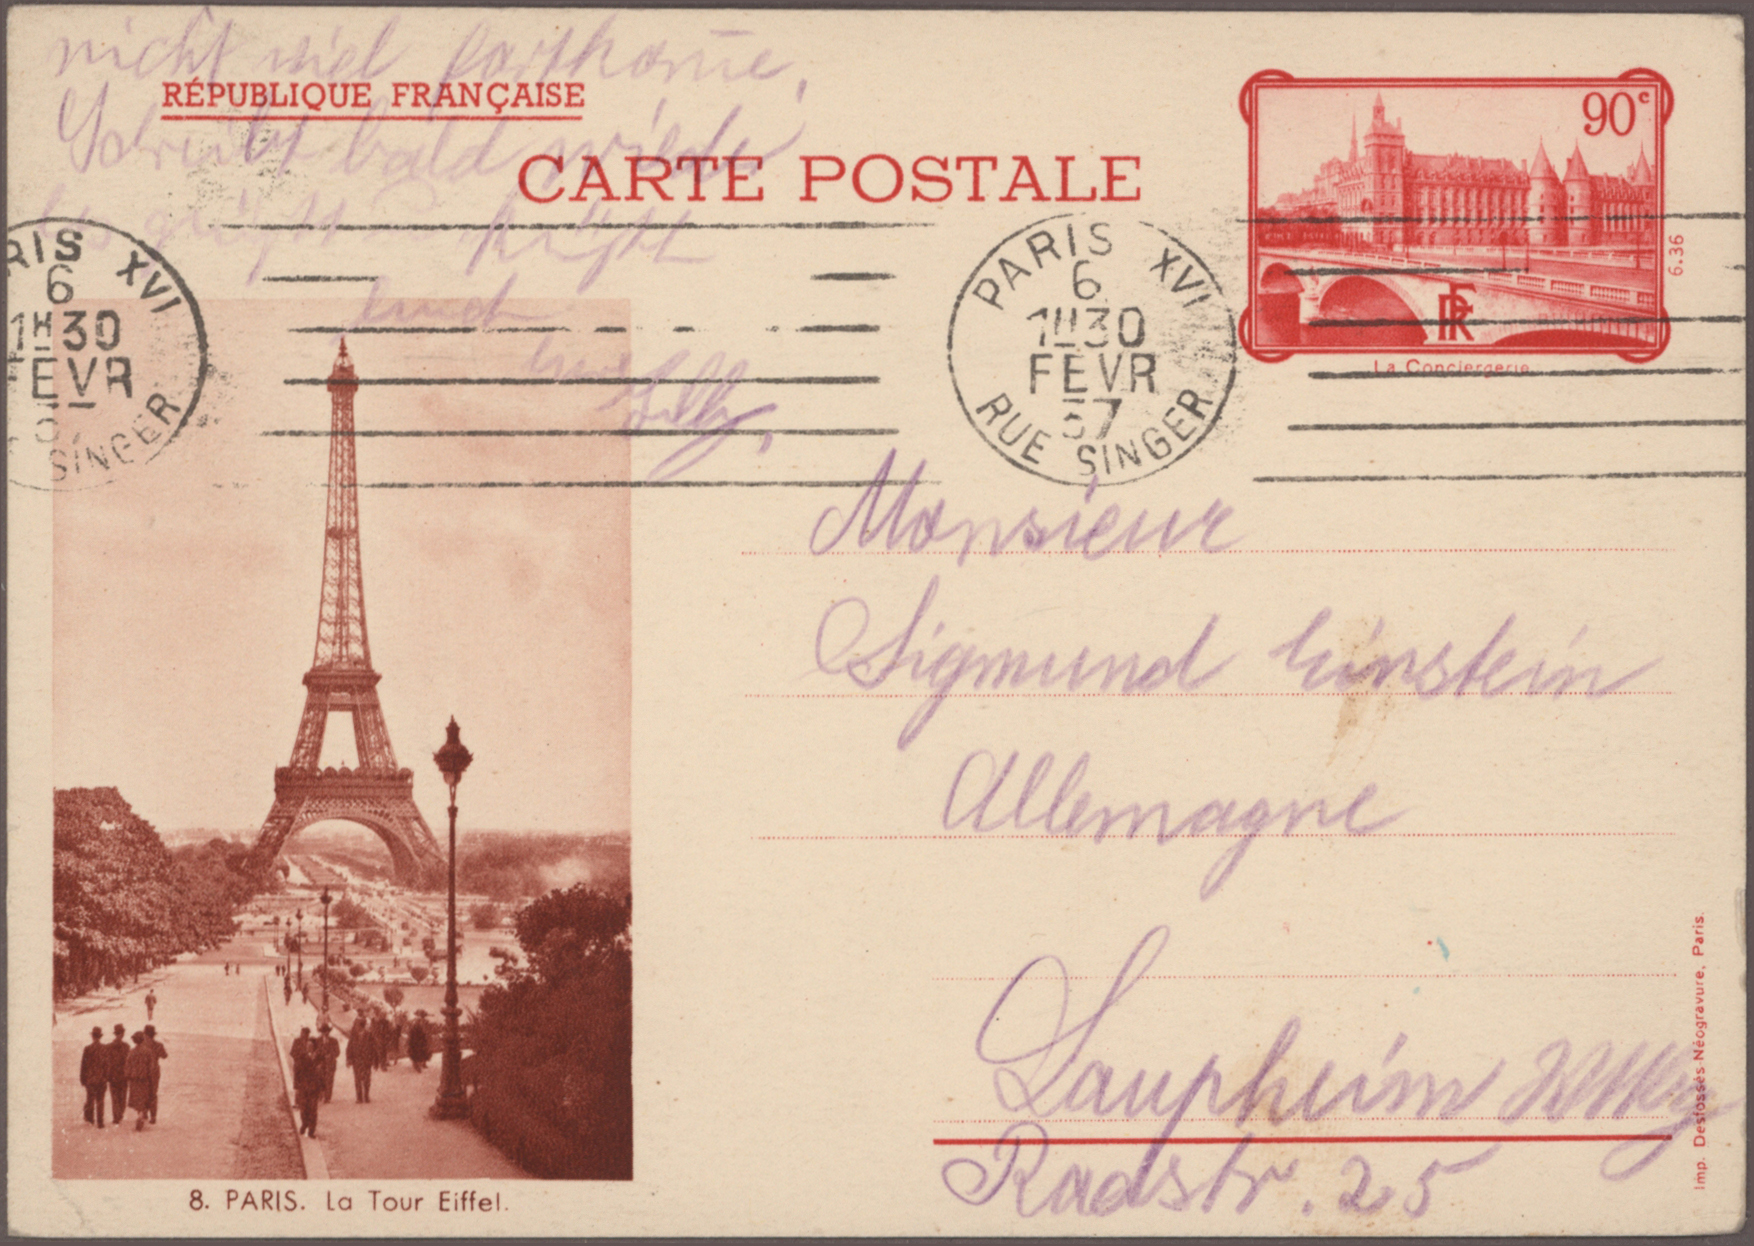 nicht viel fortkom̄e,
RÉPUBLIQUE FRANÇAISE
Schreibt bald wieder
CARTE POSTALE
90c
es grüßt küßt
Euch
Eure
Lilly,
RIS XVI
6
1H30
FEVR
SINGER
PARIS XVI
6
1H30
FEVR
37
RUE SINGER
RF
6.36
La Conciergerie
Monsieur
Sigmund Einstein
Allemagne
Laupheim Wttbg
Radstr. 25
8. PARIS. La Tour Eiffel.
Imp. Desfossés-Néogravure, Paris.